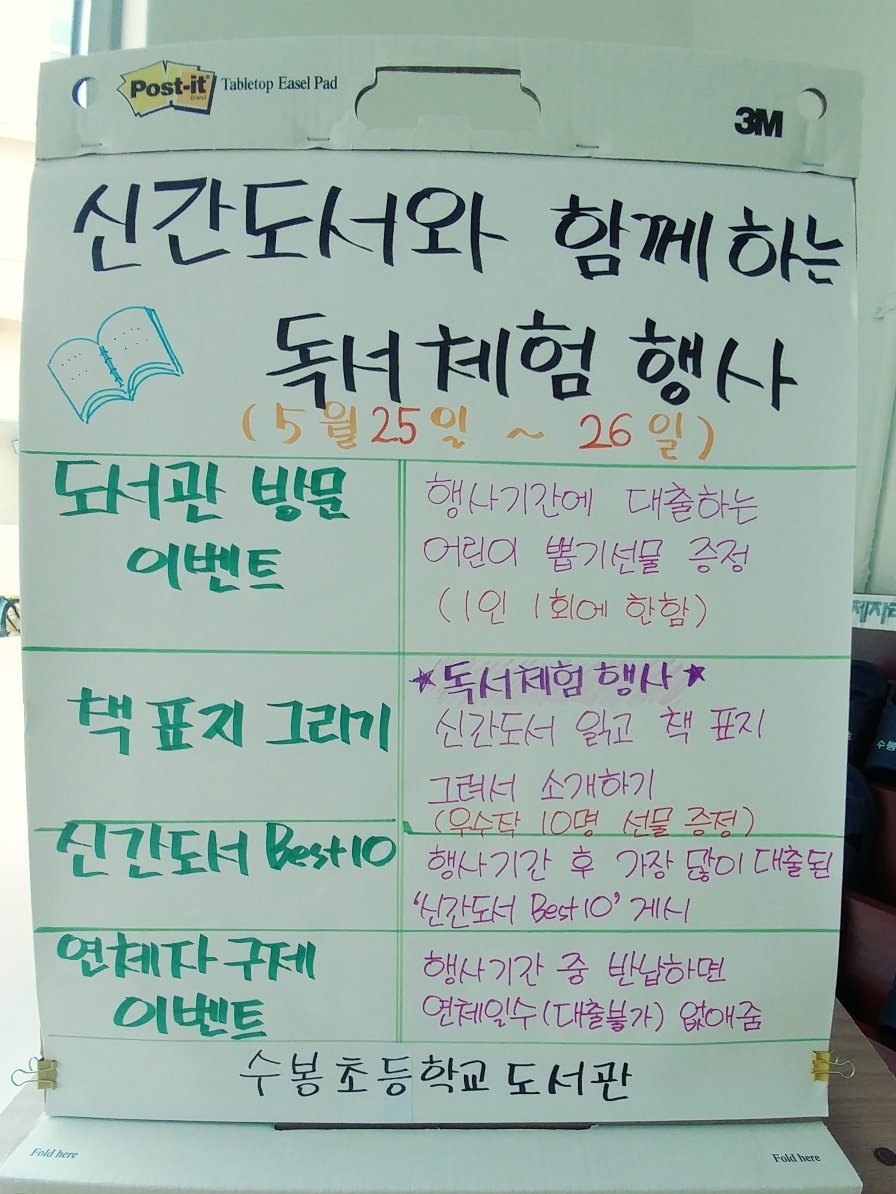 Post-it
Brand
Tabletop Easel Pad
3M
신간도서와 함께하는
독서체험 행사
(5월 25일 ~ 26일)
도서관 방문
이벤트
행사기간에 대출하는
어린이 뽑기선물 증정
(1인 1회에 한함)
책 표지 그리기
★독서체험 행사★
신간도서 읽고 책 표지
그려서 소개하기
(우수작 10명 선물 증정)
신간도서 Best10
행사기간 후 가장 많이 대출된
'신간도서 Best10' 게시
연체자 구제
이벤트
행사기간 중 반납하면
연체일수(대출불가) 없애줌
수봉초등학교 도서관
Fold here
Fold here
수봉